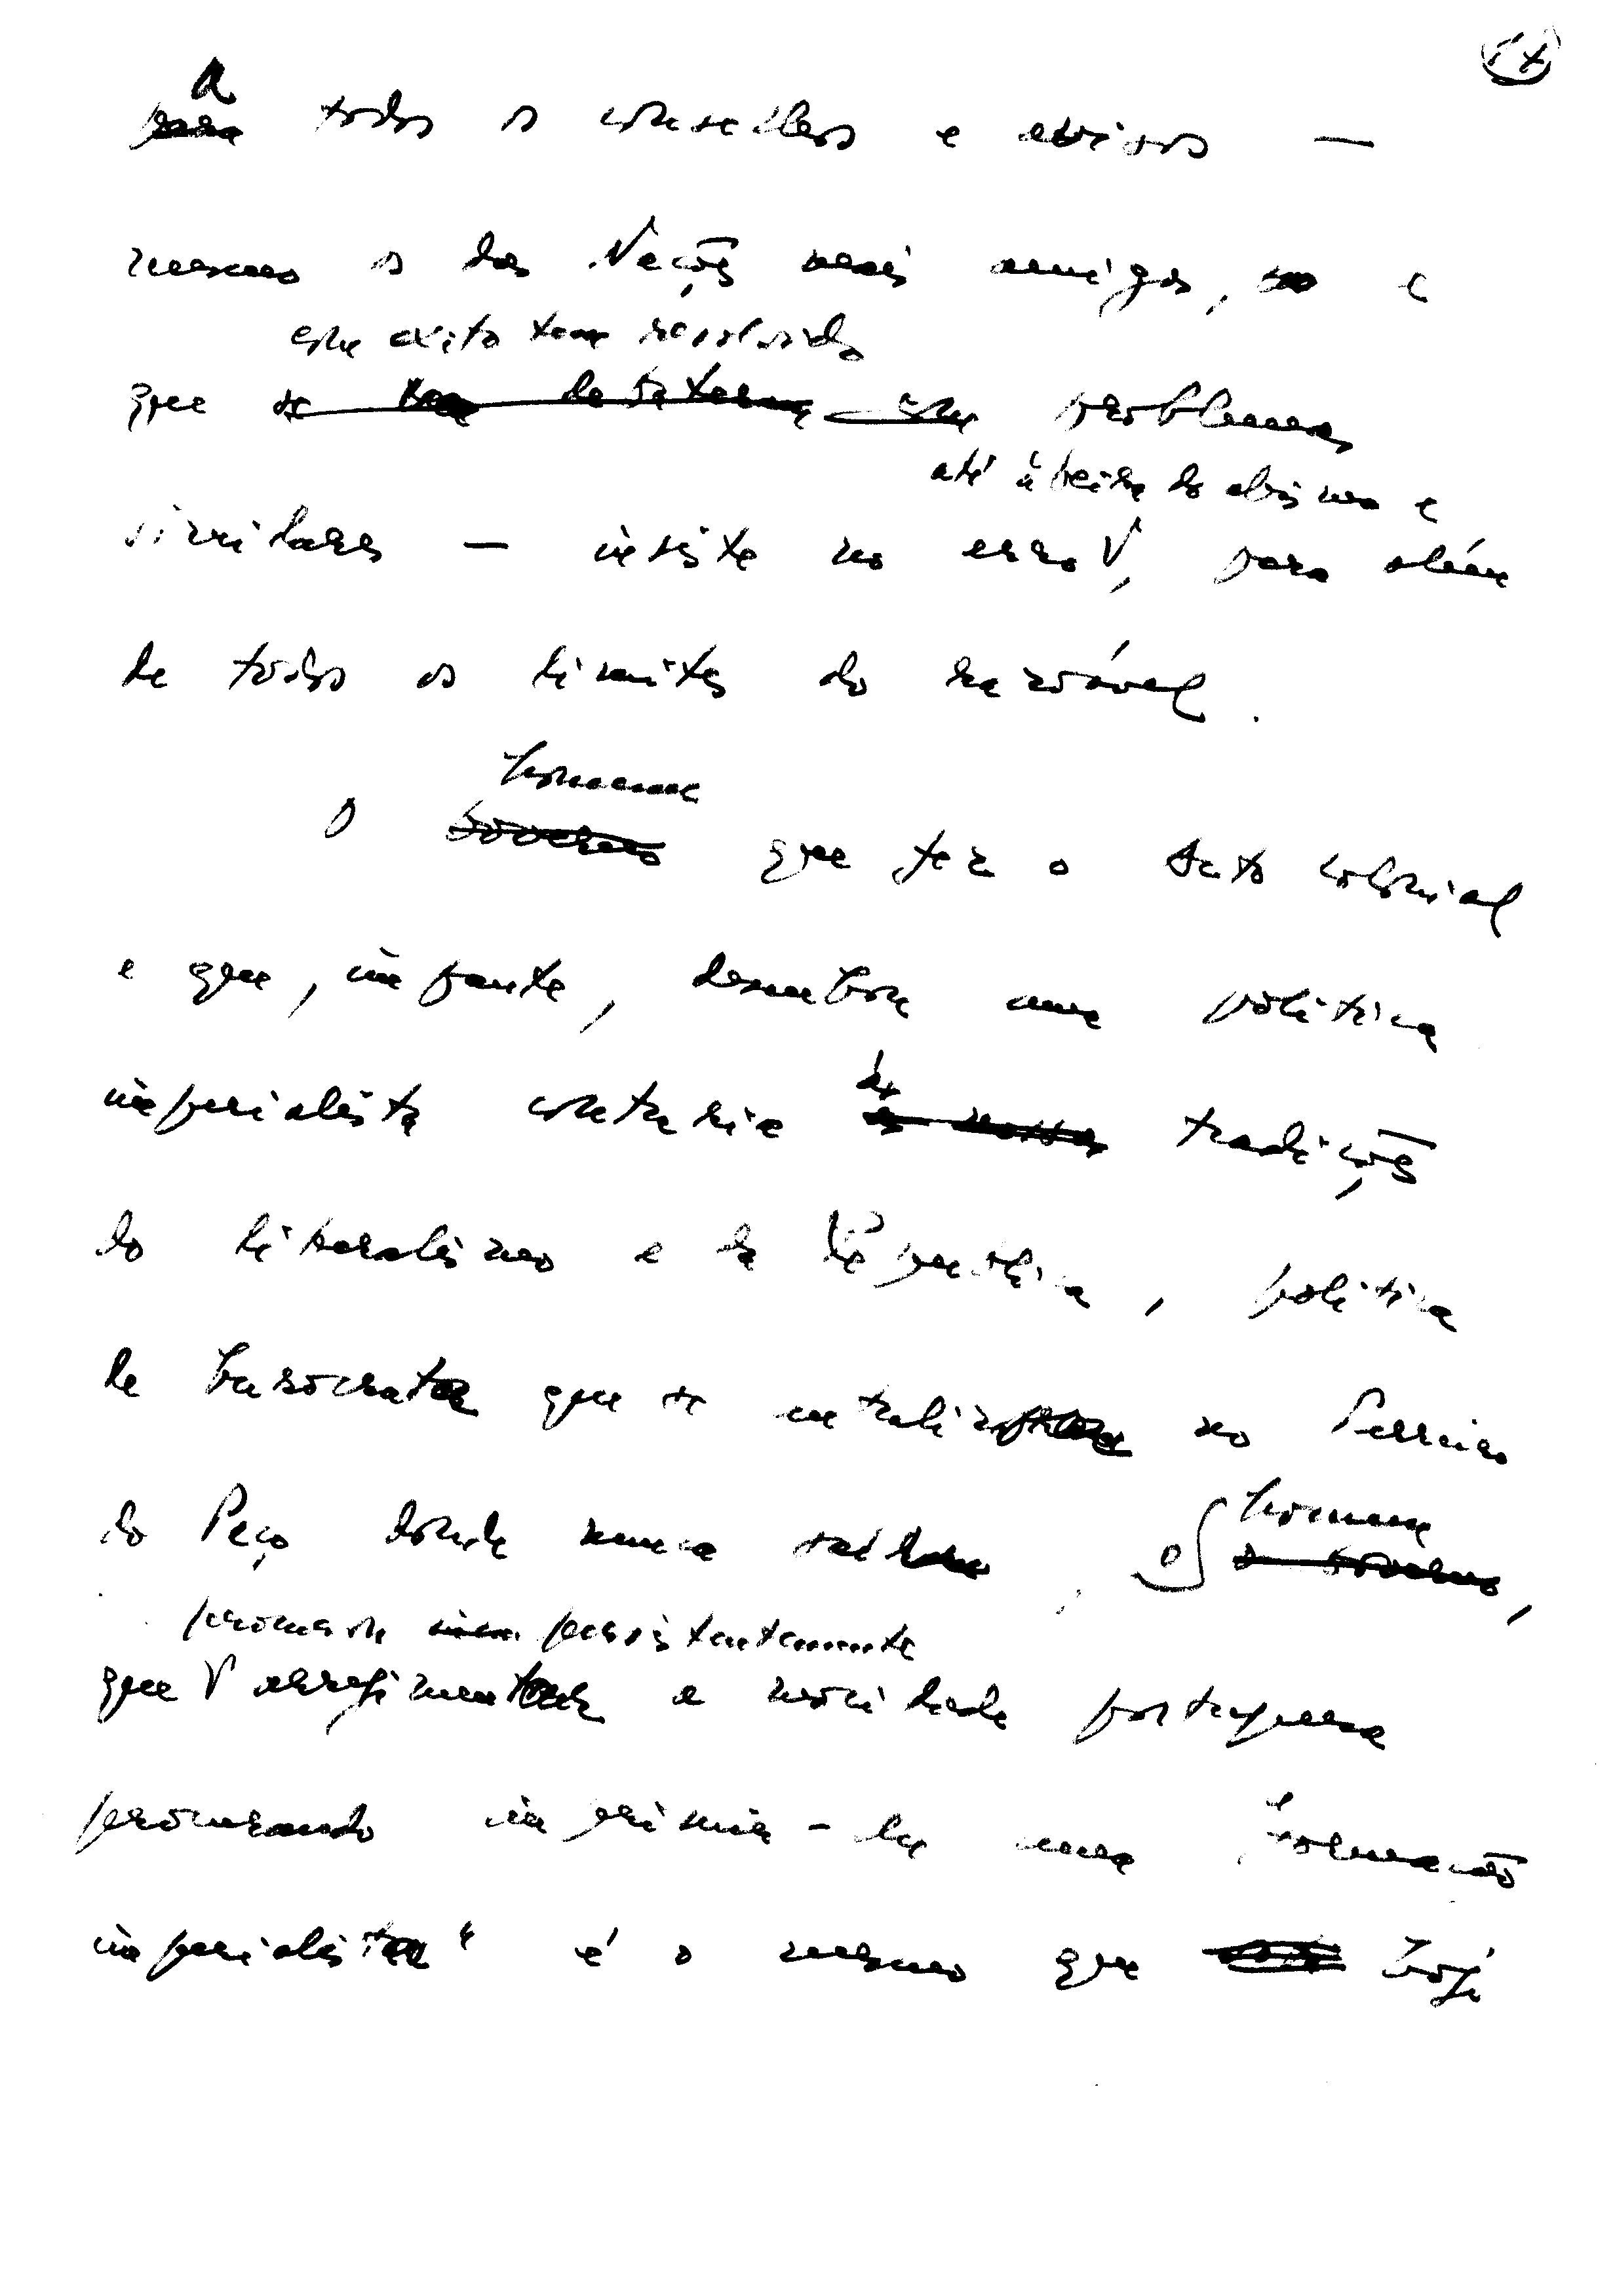 a
para todos os conselhos e avisos —
mesmo os das Nações mais amigas, e
com êxito tem resolvido
que se tem debatem com problemas
até à beira do abismo e
similares — insiste no erro, para além
de todos os limites do razoável.
homem
O Governo que fez o Acto Colonial
e que, impante, desenhou uma política
imperialista contrária às
as nossas tradições
do liberalismo e da República, política
de burocrata que se centraliza no Terreiro
do Paço donde nunca saíu, o homem
o Governo,
procurou persistentemente
que arregimentar a mocidade portuguesa
procurando imprimir-lhe uma "formação
imperialista" é o mesmo que hoje